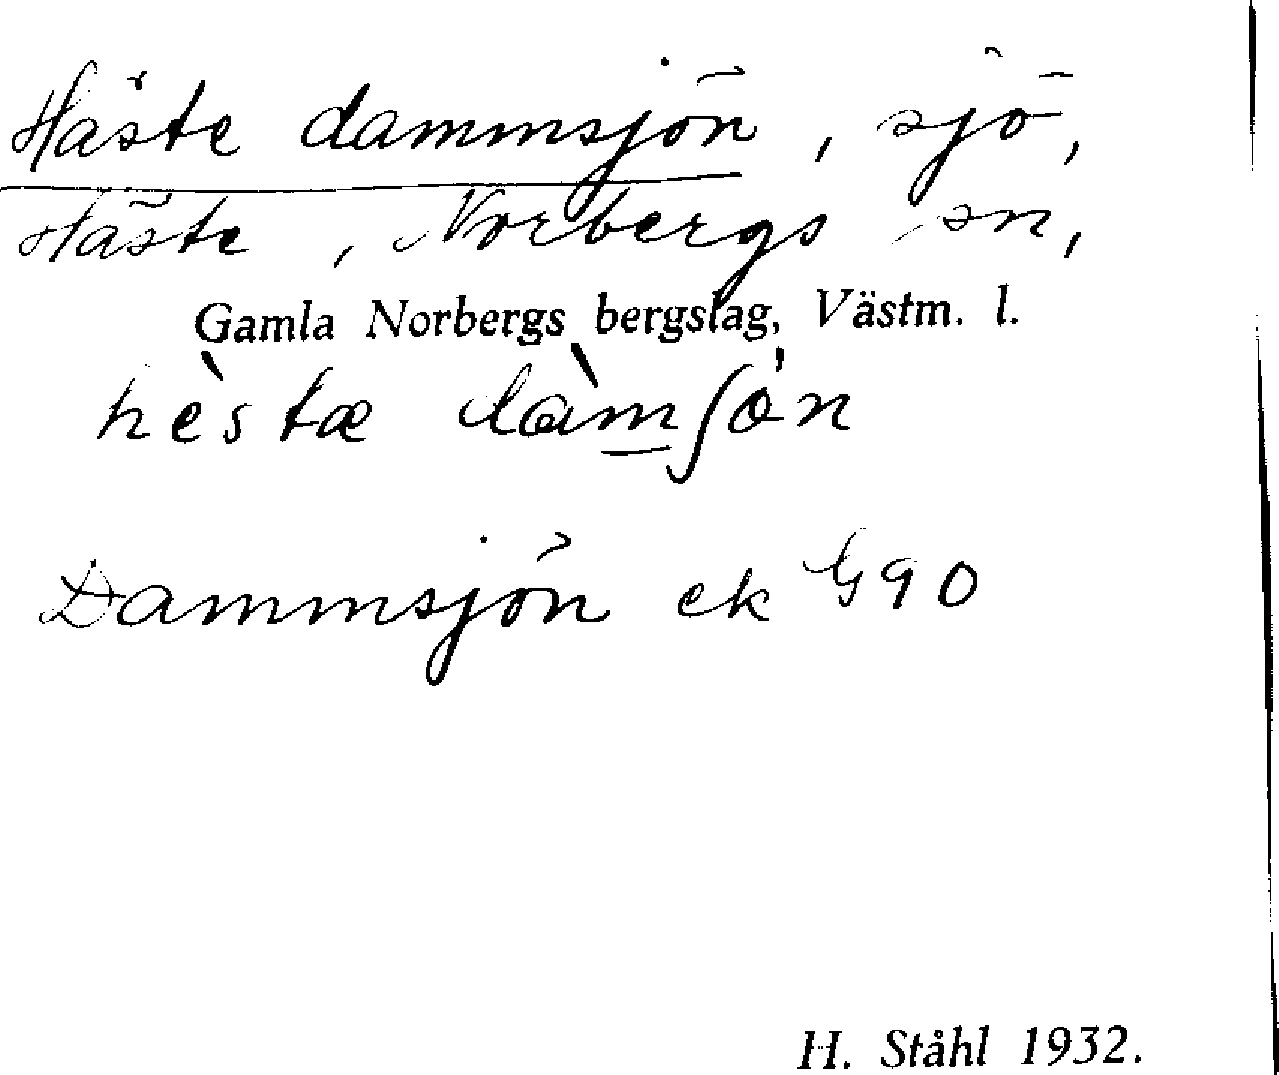 Häste dammsjön, sjö,
Häste, Norbergs sn,
Gamla Norbergs bergslag, Västm. l.
hèstæ dàmʃön
Dammsjön ek G90
H. Ståhl 1932.